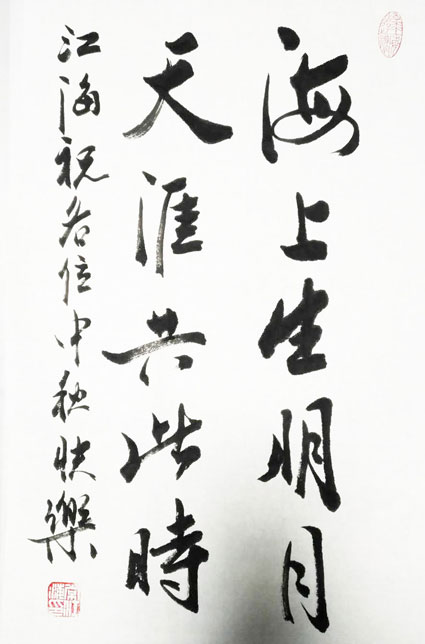 海上生明月
天涯共此時
江海祝各位中秋快樂